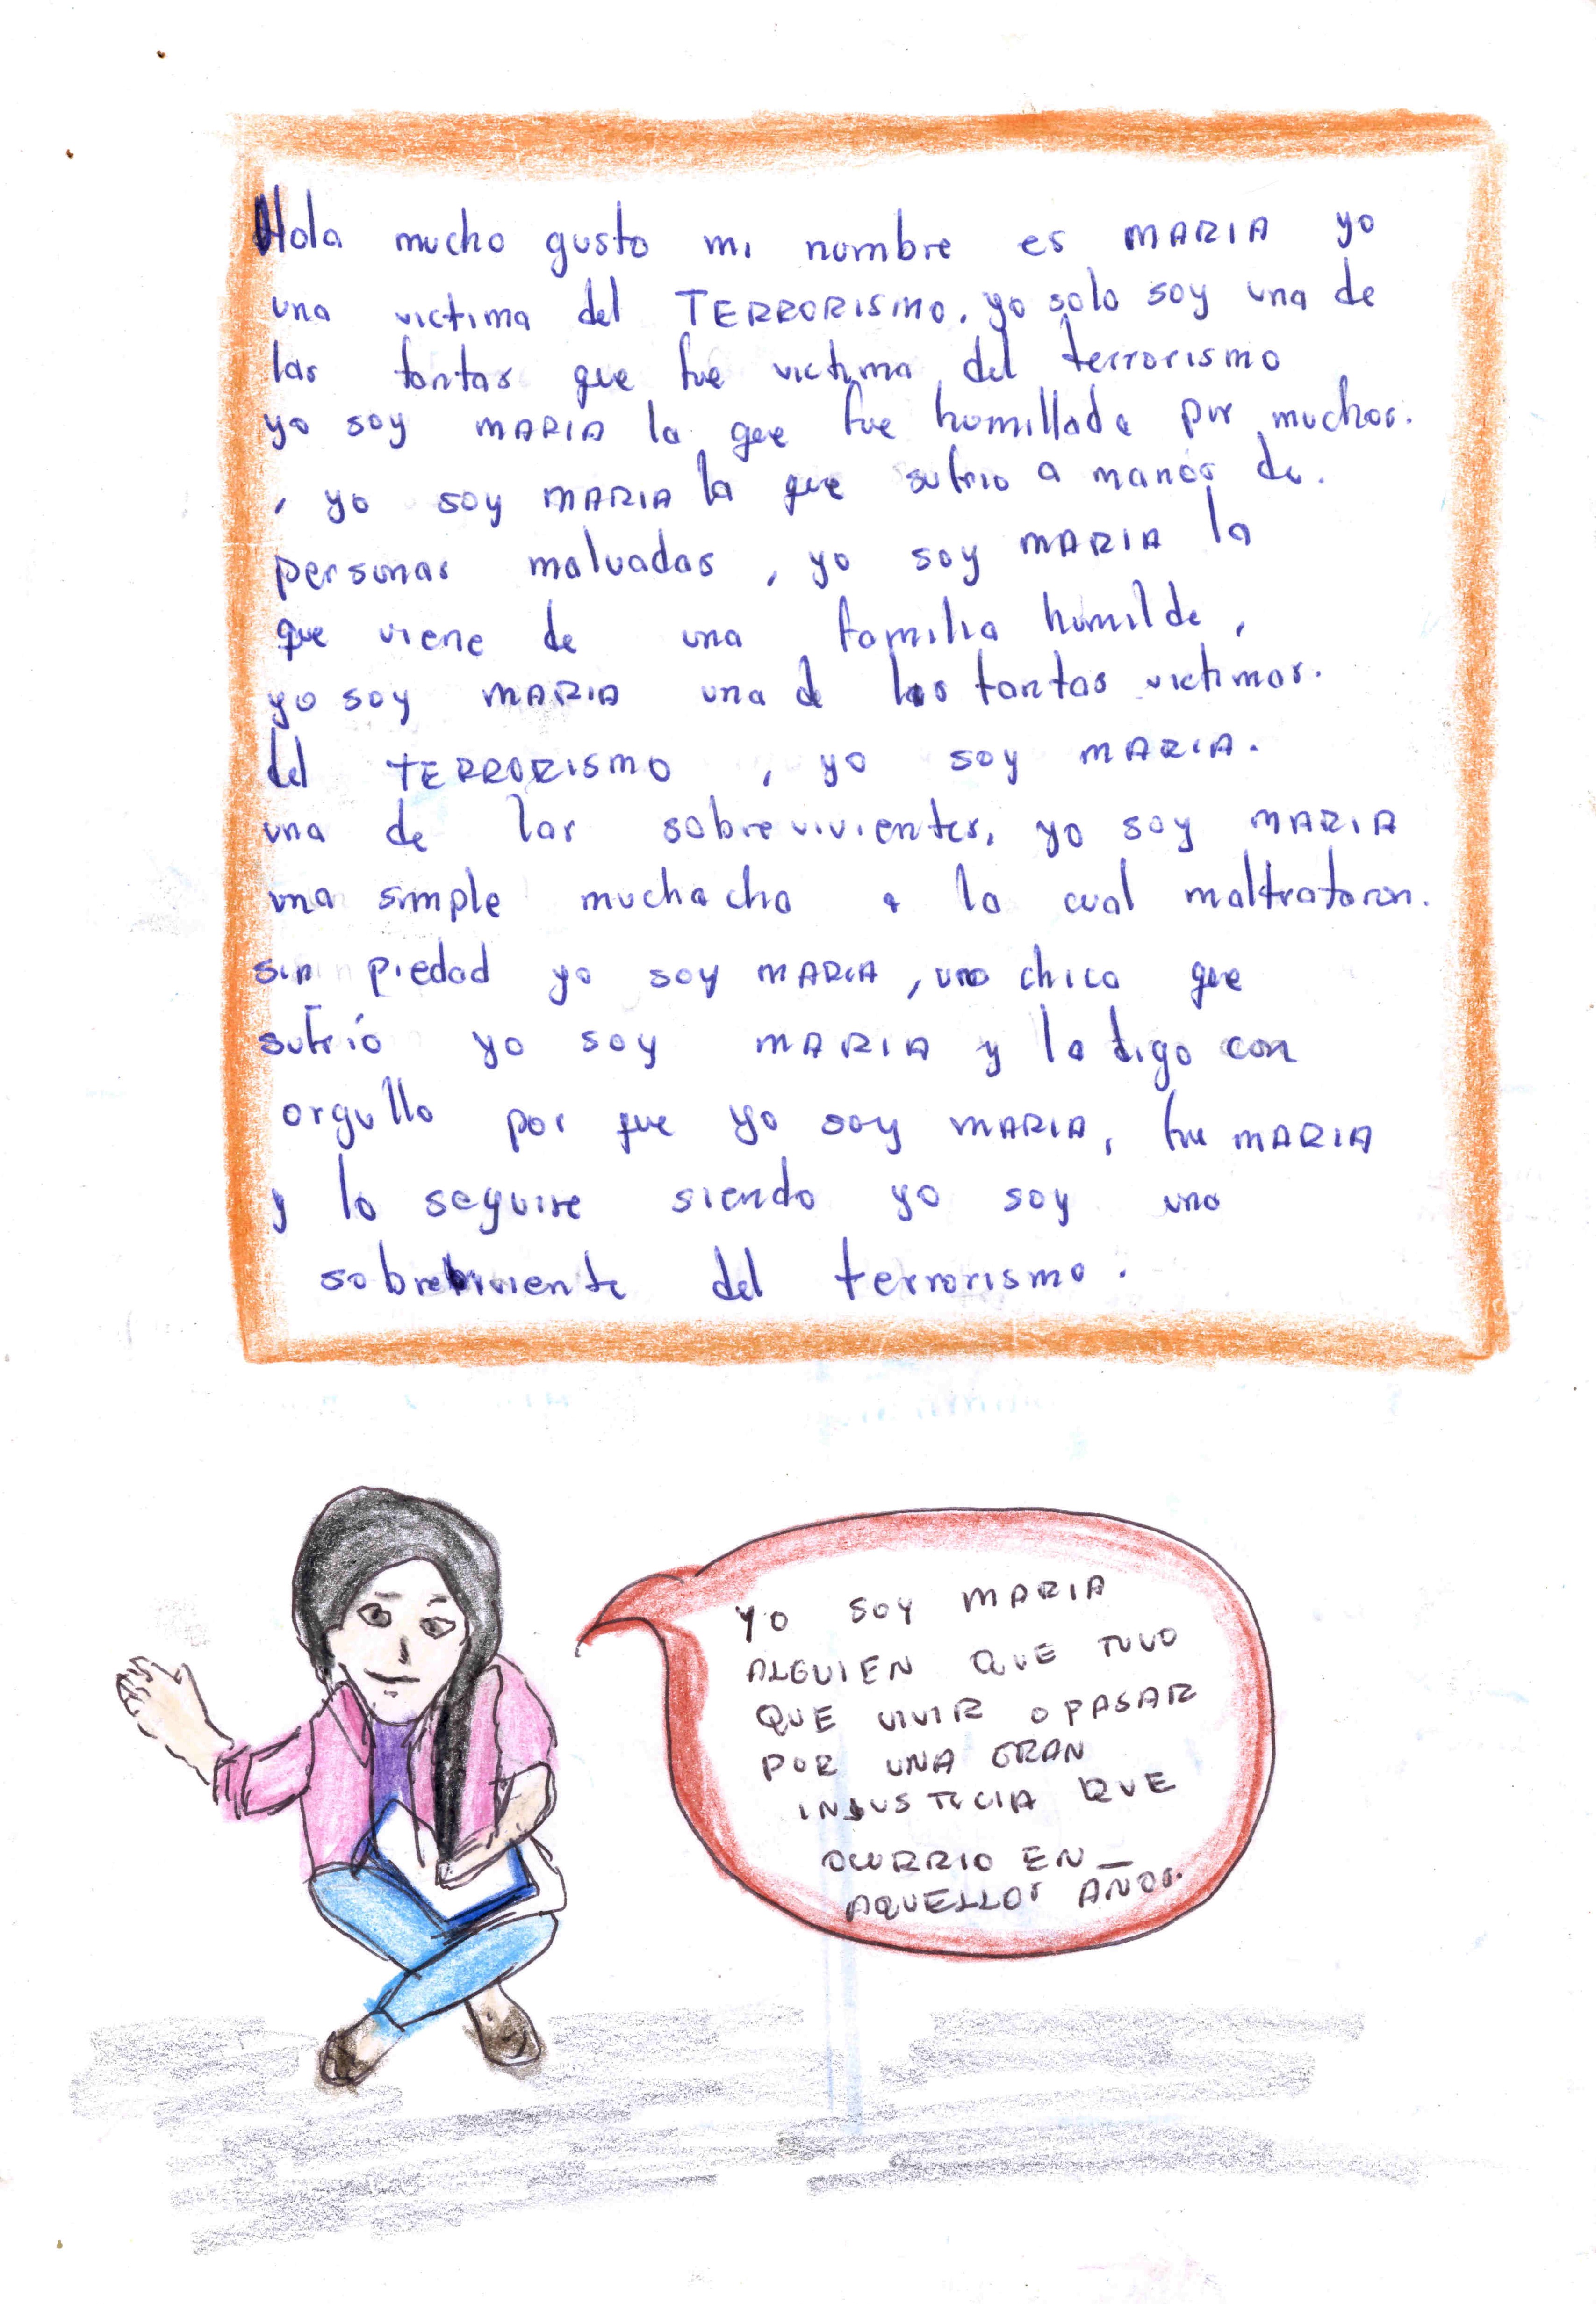 Hola mucho gusto mi nombre es MARIA yo
una victima del TERRORISMO. yo solo soy una de
las tantas que fue victima del terrorismo
yo soy MARIA la que fue humillada por muchos.
, yo soy MARIA la que sufrio a manos de.
personas malvadas, yo soy MARIA la
que viene de una familia humilde,
yo soy MARIA una de las tantas victimas.
del TERRORISMO, yo soy MARIA.
una de las sobrevivientes, yo soy MARIA
una simple muchacha a la cual maltrataron.
sin piedad yo soy MARIA, una chica que
sufrió yo soy MARIA y lo digo con
orgullo por que yo soy MARIA, fui MARIA
y lo seguire siendo yo soy una
sobreviviente del terrorismo.
YO SOY MARIA
ALGUIEN QUE TUVO
QUE VIVIR O PASAR
POR UNA GRAN
INJUSTICIA QUE
OCURRIO EN
AQUELLOS AÑOS.